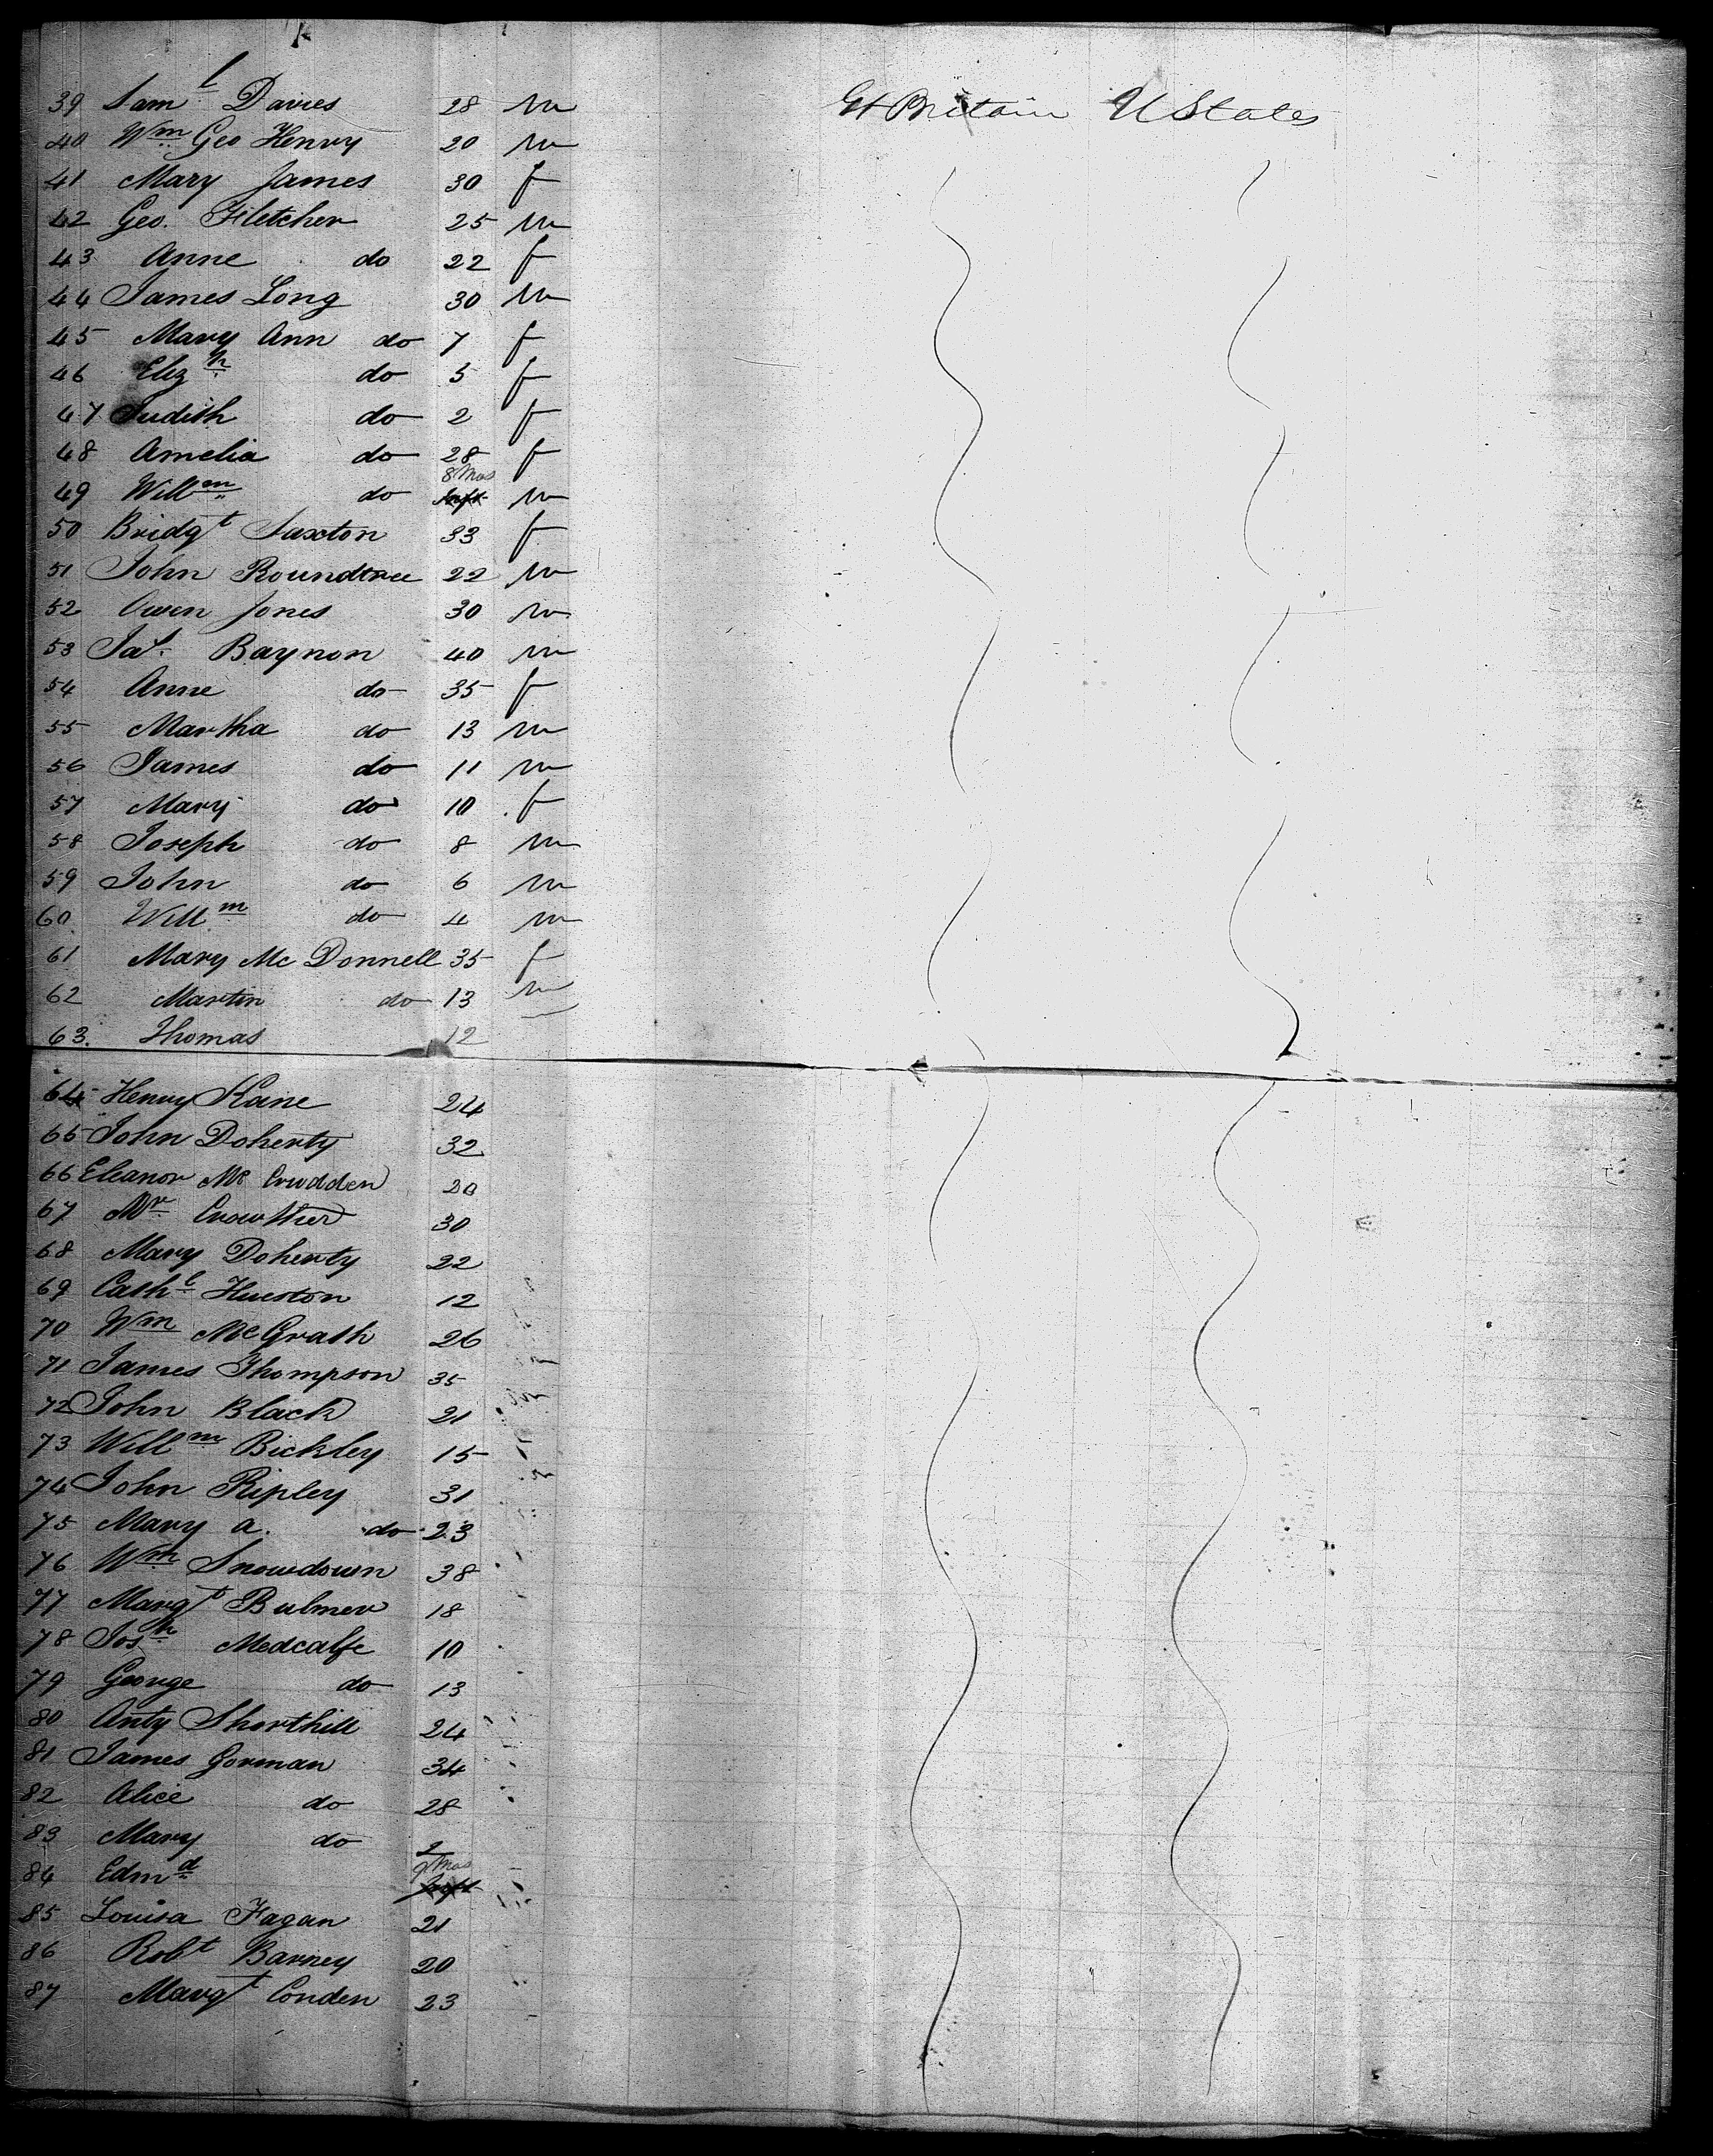 39 Saml Davies 28 m Gt Britain U States
40 Wm Geo Henry 20 m
41 Mary James 30 f
42 Geo. Fletcher 25 m
43 Anne do 22 f
44 James Long 30 m
45 Mary Ann do 7 f
46 Elizh do 5 f
47 Judith do 2 f
48 Amelia do 28 f
49 Willm do 8 Mos Inft m
50 Bridgt Saxton 33 f
51 John Roundtree 22 m
52 Owen Jones 30 m
53 Jas. Baynon 40 m
54 Anne do 35 f
55 Martha do 13 m
56 James do 11 m
57 Mary do 10 f
58 Joseph do 8 m
59 John do 6 m
60 Willm do 4 m
61 Mary Mc Donnell 35 f
62 Martin do 13 m
63. Thomas 12
64 Henry Kane 24
65 John Doherty 32
66 Eleanor Mc Crudden 20
67 Mr Crowther 30
68 Mary Doherty 22
69 Cathe Hueston 12
70 Wm McGrath 26
71 James Thompson 35
72 John Black 21
73 Willm Bickley 15
74 John Ripley 31
75 Mary a. do 23
76 Wm Snowdown 38
77 Margt Bulmer 18
78 Josh Medcalfe 10
79 George do 13
80 Anty Shorthill 24
81 James Gorman 34
82 Alice do 28
83 Mary do 2
84 Edmd 9 Mos Inft
85 Louisa Fagan 21
86 Robt Barney 20
87 Margt Conden 23